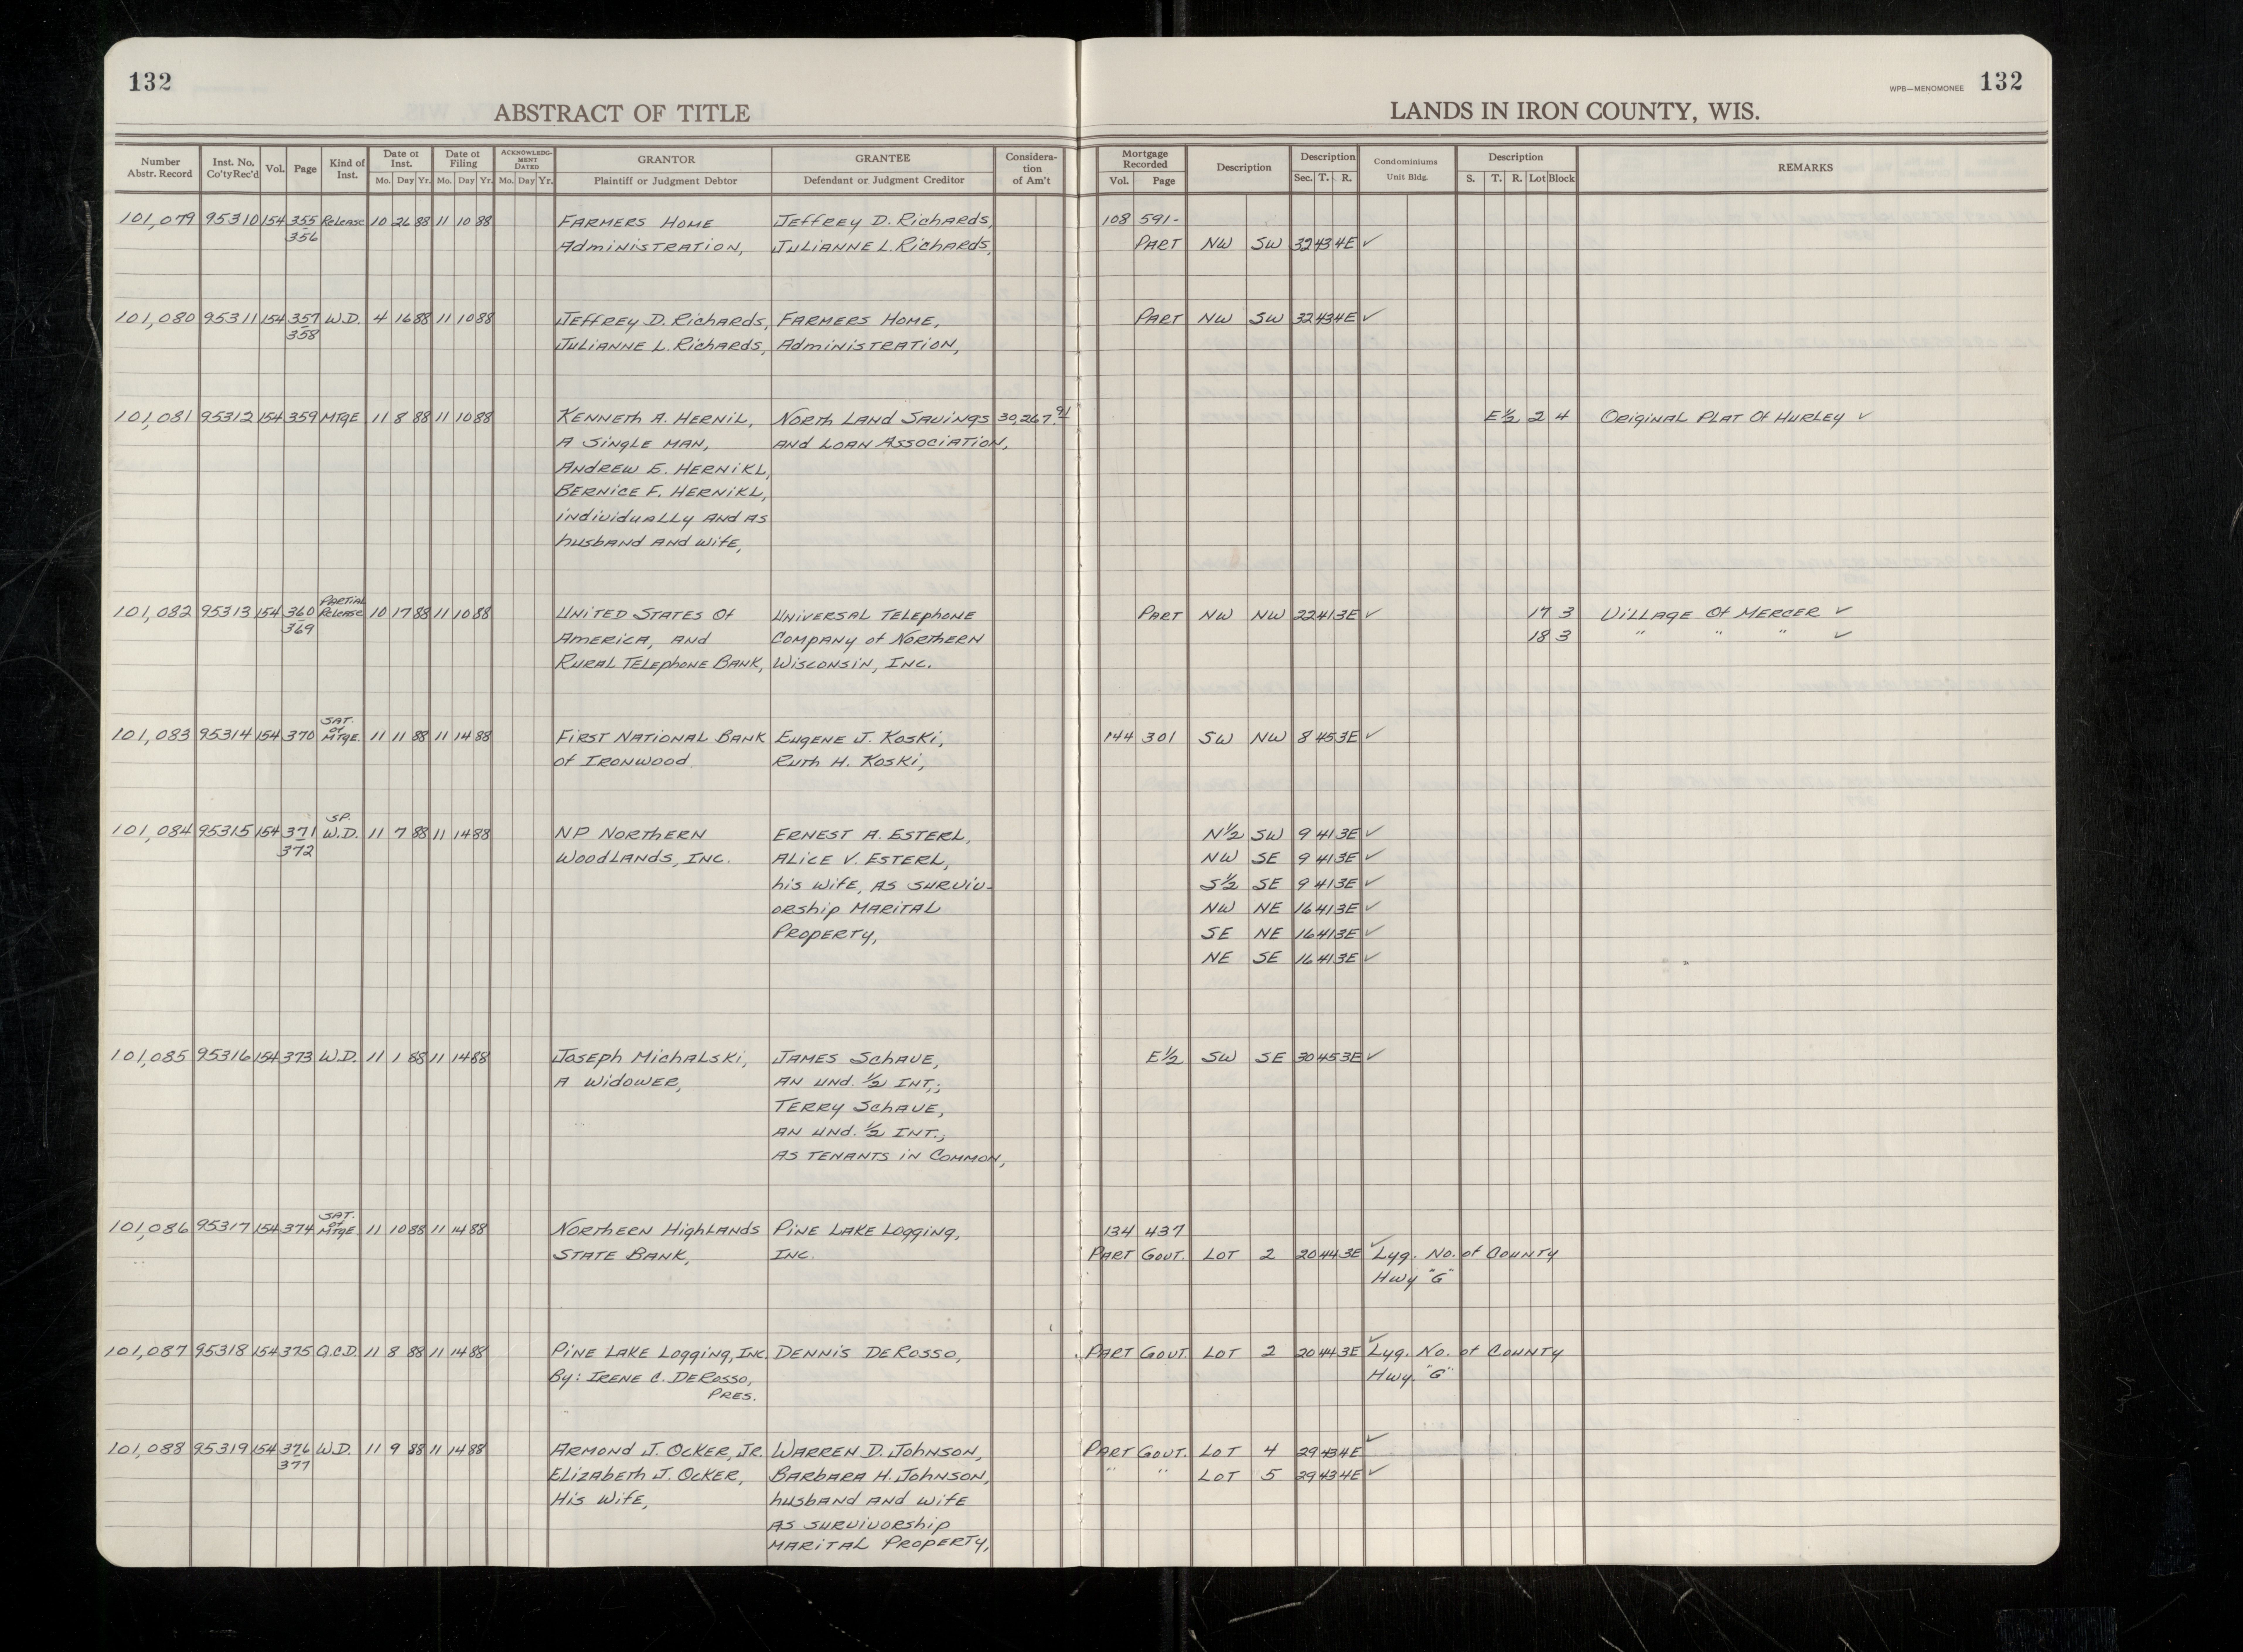 132
132
WPB—MENOMONEE
ABSTRACT OF TITLE
LANDS IN IRON COUNTY, WIS.
Number Abstr. Record | Inst. No. Co'ty Rec'd | Vol. | Page | Kind of Inst. | Date of Inst. Mo. Day Yr. | Date of Filing Mo. Day Yr. | ACKNOWLEDGMENT DATED Mo. Day Yr. | GRANTOR Plaintiff or Judgment Debtor | GRANTEE Defendant or Judgment Creditor | Consideration of Am't | Mortgage Recorded Vol. Page | Description | Description Sec. T. R. | Condominiums Unit Bldg. | Description S. T. R. Lot Block | REMARKS
101,079 95310 154 355 Release 10 26 88 11 10 88 FARMERS HOME Jeffrey D. Richards, 108 591-
356 Administration, Julianne L. Richards, PART NW SW 32 43 4E ✓
101,080 95311 154 357 W.D. 4 16 88 11 10 88 Jeffrey D. Richards, FARMERS HOME, PART NW SW 32 43 4E ✓
358 Julianne L. Richards, Administration,
101,081 95312 154 359 MTGE 11 8 88 11 10 88 KENNETH A. HERNIL, NORTH LAND SAVINGS 30,267.91 E½ 2 4 Original Plat Of Hurley ✓
A Single man, AND LOAN ASSOCIATION,
ANDREW E. HERNIKL,
BERNICE F. HERNIKL,
individually AND AS
husband AND wife,
PARTIAL
101,082 95313 154 360 Release 10 17 88 11 10 88 UNITED STATES Of UNIVERSAL TELEPHONE PART NW NW 22 41 3E ✓ 17 3 Village Of Mercer ✓
369 America, and Company of Northern 18 3 " " " ✓
Rural Telephone Bank, Wisconsin, Inc.
SAT. of
101,083 95314 154 370 MTGE. 11 11 88 11 14 88 First National Bank Eugene J. Koski, 144 301 SW NW 8 45 3E ✓
of Ironwood Ruth H. Koski,
SP.
101,084 95315 154 371 W.D. 11 7 88 11 14 88 NP Northern ERNEST A. ESTERL, N½ SW 9 41 3E ✓
372 Woodlands, Inc. ALICE V. ESTERL, NW SE 9 41 3E ✓
his wife, AS surviv- S½ SE 9 41 3E ✓
orship MARITAL NW NE 16 41 3E ✓
PROPERTY, SE NE 16 41 3E ✓
NE SE 16 41 3E ✓
101,085 95316 154 373 W.D. 11 1 88 11 14 88 Joseph Michalski, JAMES Schave, E½ SW SE 30 45 3E ✓
A Widower, AN und. ½ INT.;
TERRY Schave,
AN und. ½ INT.;
AS TENANTS in Common,
SAT. of
101,086 95317 154 374 MTGE 11 10 88 11 14 88 Northern Highlands Pine Lake Logging, 134 437
State Bank, Inc. PART GOVT. LOT 2 20 44 3E ✓ Lyg. No. of County
Hwy "G"
101,087 95318 154 375 Q.C.D. 11 8 88 11 14 88 Pine Lake Logging, Inc. DENNIS DEROSSO, PART GOVT. LOT 2 20 44 3E ✓ Lyg. No. of County
By: IRENE C. DEROSSO, Hwy. "G"
PRES.
101,088 95319 154 376 W.D. 11 9 88 11 14 88 ARMOND J. OCKER, JR. WARREN D. JOHNSON, PART GOVT. LOT 4 29 43 4E ✓
377 Elizabeth J. Ocker, BARBARA H. JOHNSON, " " LOT 5 29 43 4E ✓
His Wife, husband AND wife
AS survivorship
MARITAL PROPERTY,